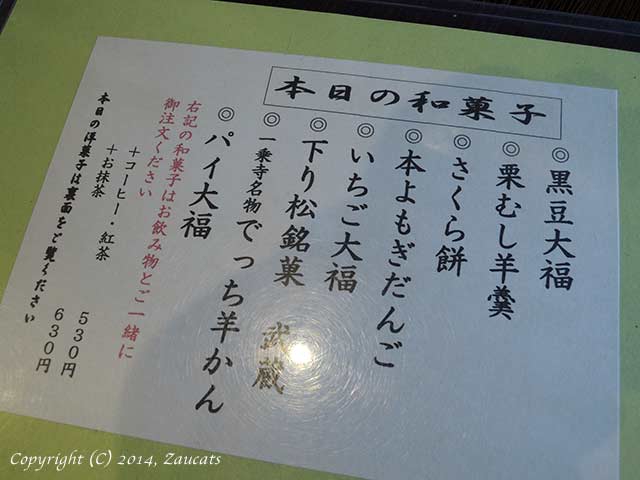 本日の和菓子
◎黒豆大福
◎栗むし羊羹
◎さくら餅
◎本よもぎだんご
◎いちご大福
◎下り松銘菓 武蔵
◎一乗寺名物でっち羊かん
◎パイ大福
右記の和菓子はお飲み物とご一緒に
御注文ください
＋コーヒー・紅茶 530円
＋お抹茶 630円
本日の洋菓子は裏面をご覧ください
Copyright (C) 2014, Zaucats